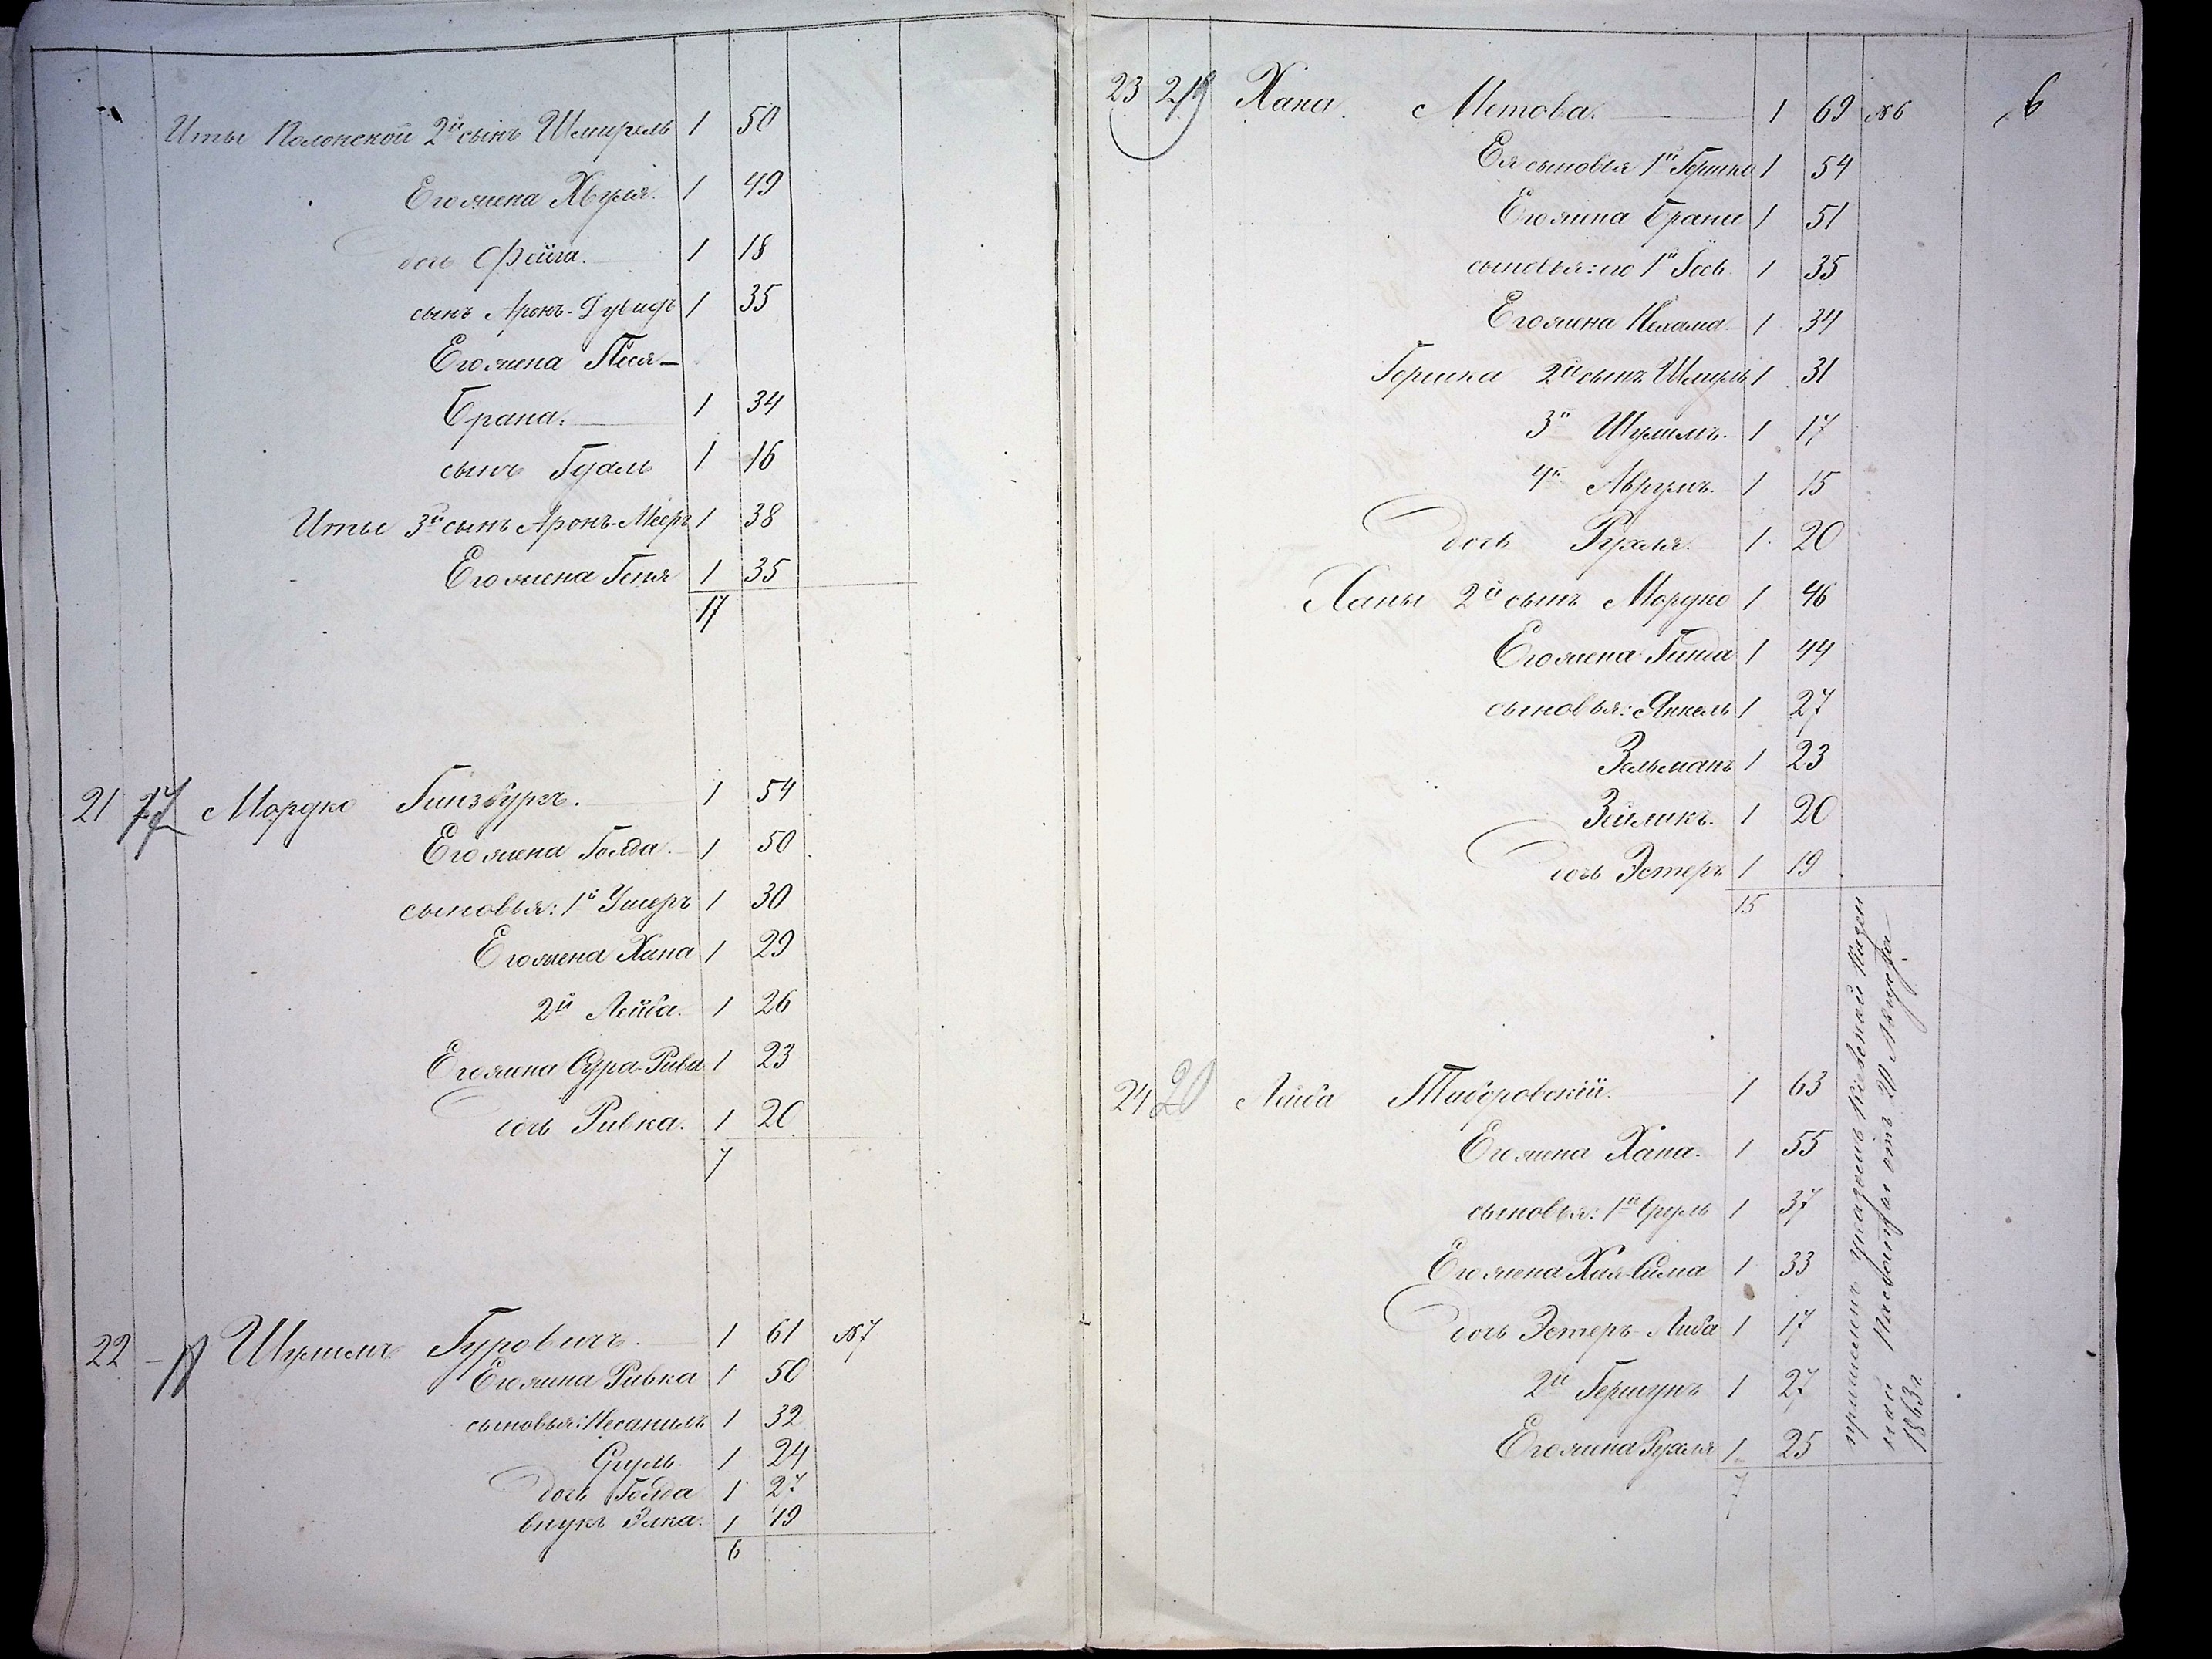 Иты Полонской 2й сынъ Шмерель 1 50
Его жена Хвуля. 1 49
дочь Фейга. 1 18
сынъ Аронъ-Дувидъ 1 35
Его жена Песя-
Брана. 1 34
сынъ Гдаль 1 16
Иты 3й сынъ Аронъ-Мееръ 1 38
Его жена Геня 1 35
17
21 17 Мордко Гинзбургъ. 1 54
Его жена Голда. 1 50
сыновья: 1й Ушеръ 1 30
Его жена Хана 1 29
2й Лейба. 1 26
Его жена Сура-Рива 1 23
дочь Ривка. 1 20
7
22 Шулимъ Гуровичъ. 1 61 №7
Его жена Ривка 1 50
сыновья: Несанилъ 1 32
Сруль. 1 24
дочь Голда 1 27
внукъ Элка. 1 19
6
6
23 19 Хана Метова. 1 69 №6
Ея сыновья 1й Гершко 1 54
Его жена Брана 1 51
сыновья: его 1й Іось 1 35
Его жена Нехама 1 34
Гершка 2й сынъ Шмуль 1 31
3й Шулимъ. 1 17
4й Аврумъ. 1 15
дочь Рухля. 1 20
Ханы 2й сынъ Мордко 1 46
Его жена Гинда 1 44
сыновья: Янкель 1 27
Зельманъ 1 23
Зейликъ. 1 20
дочь Эстеръ 1 19
15
24 20 Лейба Таборовскій. 1 63
Его жена Хана. 1 55
сыновья: 1й Сруль 1 37
Его жена Хая-Сима 1 33
дочь Эстеръ-Либа 1 17
2й Гершунъ 1 27
Его жена Рухля 1 25
7
причисленъ указомъ Кіевской Казен
ной Палаты отъ 20 Августа
1863 г.